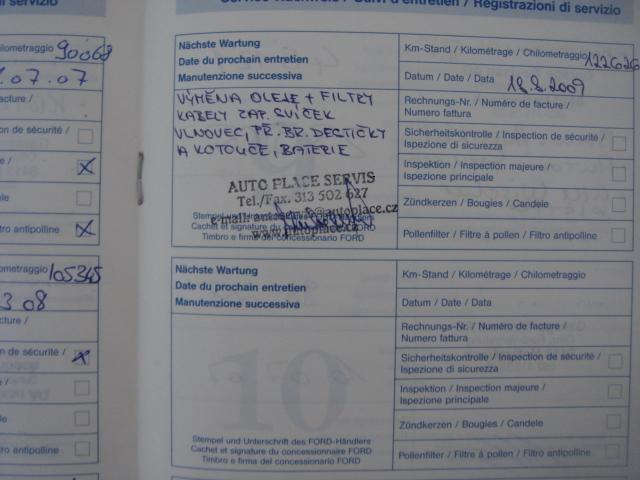 di servizio
Service-Nachweis / Suivi d'entretien / Registrazioni di servizio
ilometraggio 90068
.07.07
facture /
on de sécurité /
e /
le
tro antipolline
ometraggio 105345
3 08
cture /
n de sécurité /
/
le
tro antipolline
Nächste Wartung
Date du prochain entretien
Manutenzione successiva
Km-Stand / Kilométrage / Chilometraggio 122626
Datum / Date / Data 18.8.2009
VÝMĚNA OLEJE + FILTRY
KABELY ZAP. SVÍČEK
VLNOVEC, PŘ. BR. DESTIČKY
A KOTOUČE, BATERIE
Rechnungs-Nr. / Numéro de facture /
Numero fattura
Sicherheitskontrolle / Inspection de sécurité /
Ispezione di sicurezza
Inspektion / Inspection majeure /
Ispezione principale
Zündkerzen / Bougies / Candele
Pollenfilter / Filtre à pollen / Filtro antipolline
AUTO PLACE SERVIS
Tel./Fax. 313 502 627
e-mail: @autoplace.cz
www.autoplace.cz
Stempel und Unterschrift des FORD-Händlers
Cachet et signature du concessionnaire FORD
Timbro e firma del concessionario FORD
Nächste Wartung
Date du prochain entretien
Manutenzione successiva
Km-Stand / Kilométrage / Chilometraggio
Datum / Date / Data
10
Rechnungs-Nr. / Numéro de facture /
Numero fattura
Sicherheitskontrolle / Inspection de sécurité /
Ispezione di sicurezza
Inspektion / Inspection majeure /
Ispezione principale
Zündkerzen / Bougies / Candele
Pollenfilter / Filtre à pollen / Filtro antipolline
Stempel und Unterschrift des FORD-Händlers
Cachet et signature du concessionnaire FORD
Timbro e firma del concessionario FORD